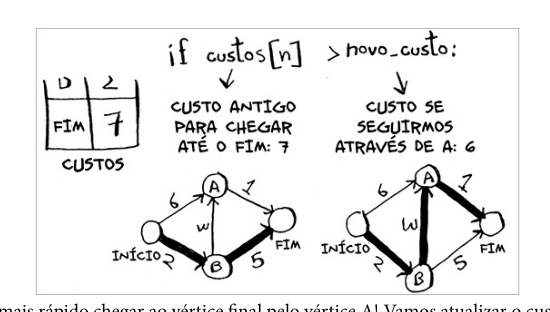 if custos[n] > novo_custo:
B 2
FIM 7
CUSTOS
CUSTO ANTIGO
PARA CHEGAR
ATÉ O FIM: 7
CUSTO SE
SEGUIRMOS
ATRAVÉS DE A: 6
6 A 1
3
INÍCIO 2 B 5 FIM
6 A 1
3
INÍCIO 2 B 5 FIM
mais rápido chegar ao vértice final pelo vértice A! Vamos atualizar o cus